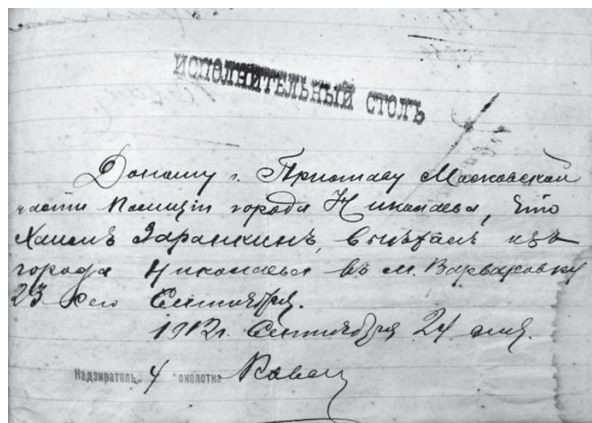 ИСПОЛНИТЕЛЬНЫЙ СТОЛЪ
Доношу г. Приставу Московской
части полиціи города Николаева, что
Хаимъ Заранкинъ, выѣхалъ изъ
города Николаева въ м. Варваровку
23 сего Сентября.
1912 г. Сентября 24 дня.
Надзиратель 4 околотка